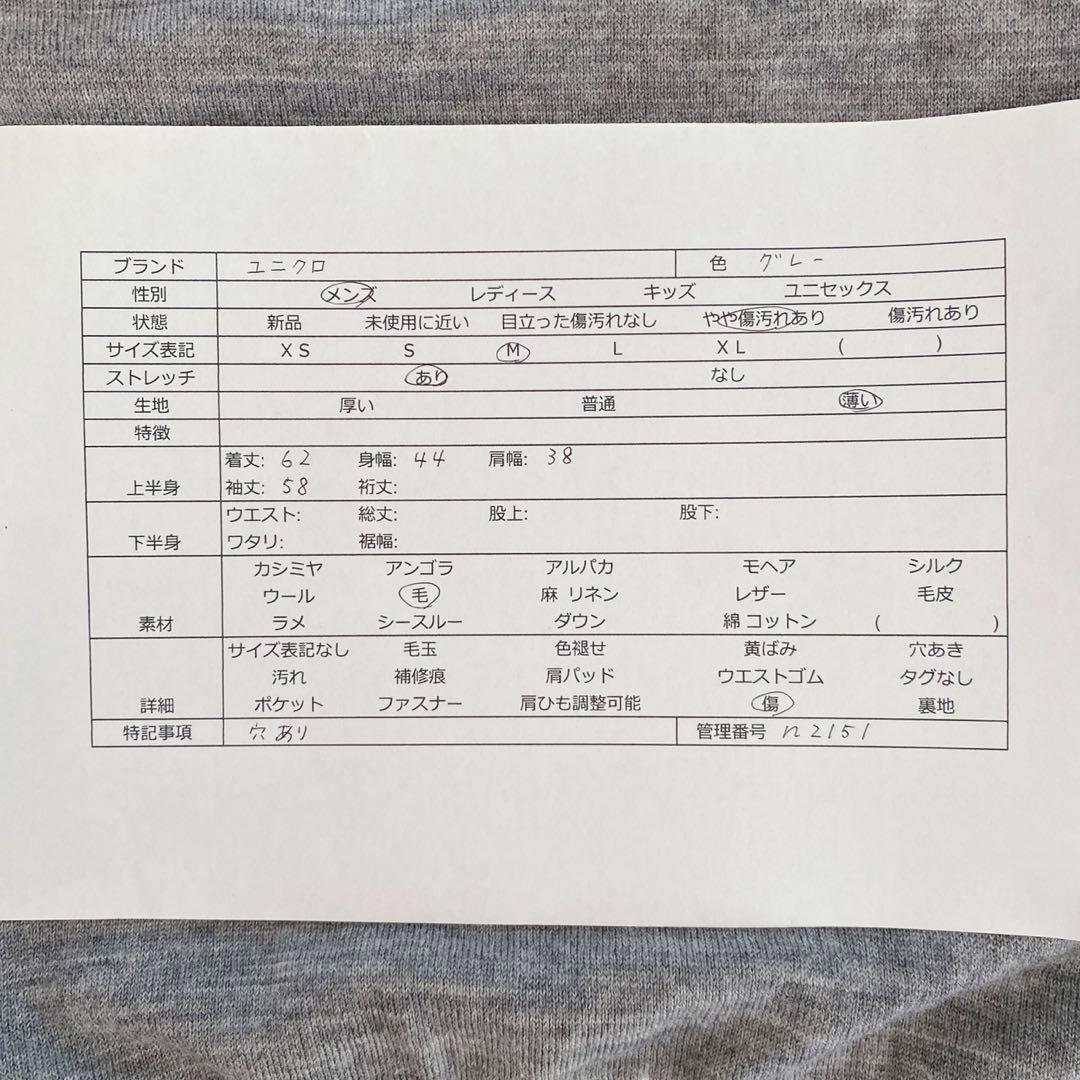 ブランド ユニクロ 色 グレー
性別 メンズ レディース キッズ ユニセックス
状態 新品 未使用に近い 目立った傷汚れなし やや傷汚れあり 傷汚れあり
サイズ表記 XS S M L XL ( )
ストレッチ あり なし
生地 厚い 普通 薄い
特徴
上半身 着丈: 62 身幅: 44 肩幅: 38
袖丈: 58 裄丈:
下半身 ウエスト: 総丈: 股上: 股下:
ワタリ: 裾幅:
素材 カシミヤ アンゴラ アルパカ モヘア シルク
ウール 毛 麻 リネン レザー 毛皮
ラメ シースルー ダウン 綿 コットン ( )
詳細 サイズ表記なし 毛玉 色褪せ 黄ばみ 穴あき
汚れ 補修痕 肩パッド ウエストゴム タグなし
ポケット ファスナー 肩ひも調整可能 傷 裏地
特記事項 穴あり 管理番号 n2151